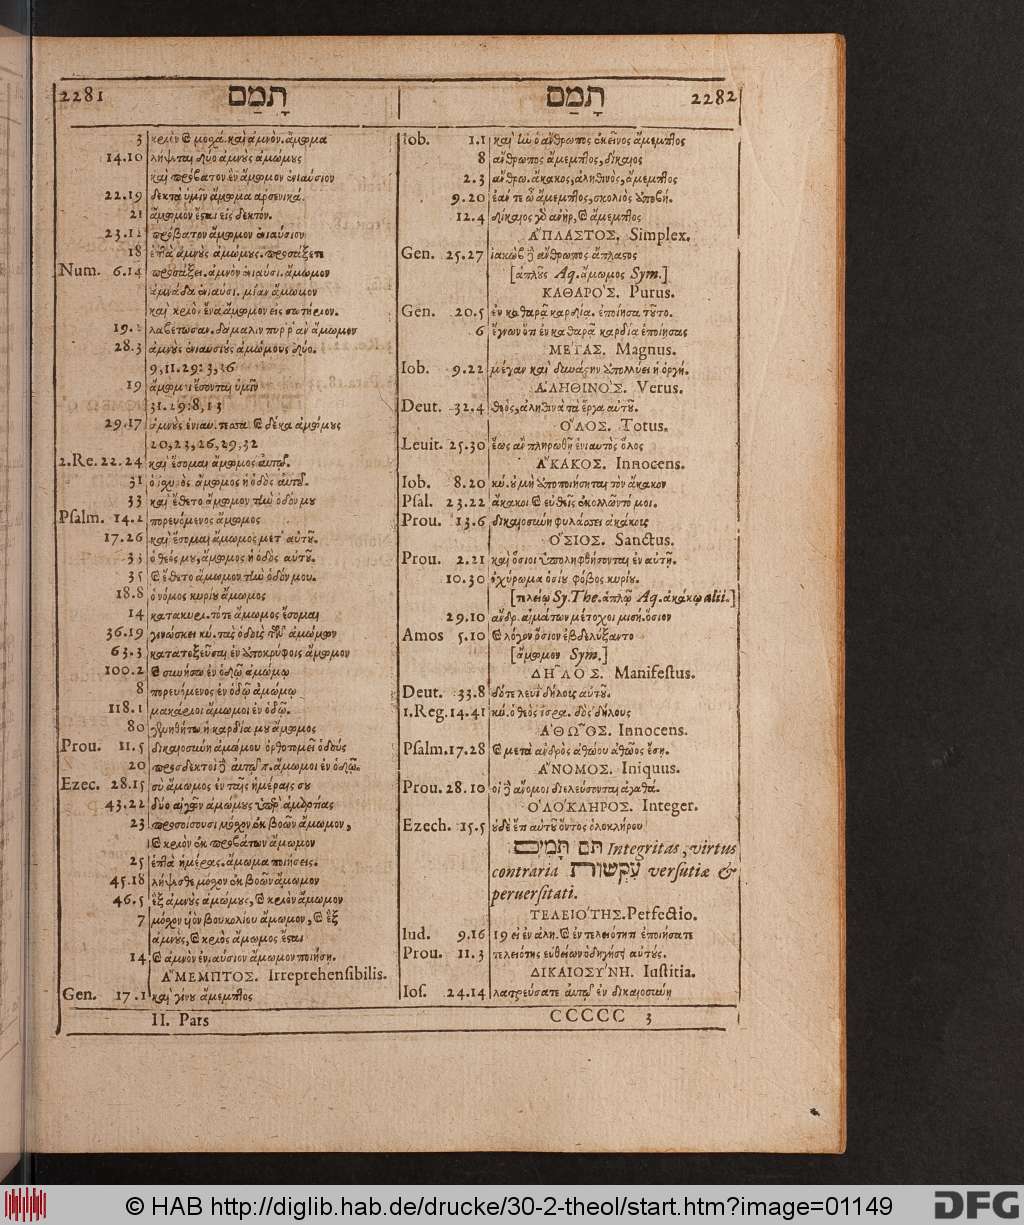 2281 תָּמַם
3 κριὸν ϗ μοσχά. καὶ ἀμνὸν. ἄμωμα
14.10 λήψεται δύο ἀμνοὺς ἀμώμους
καὶ πρόβατον ἓν ἄμωμον ἐνιαύσιον
22.19 δεκτὰ ὑμῖν ἄμωμα ἀρσενικά.
21 ἄμωμον ἔσται εἰς δεκτόν.
23.12 πρόβατον ἄμωμον ἐνιαύσιον
18 ἑπτὰ ἀμνοὺς ἀμώμους. προσάξετε
Num. 6.14 προσάξει. ἀμνὸν ἐνιαύσι. ἄμωμον
ἀμνάδα ἐνιαύσι. μίαν ἄμωμον
καὶ κριὸν ἕνα ἄμωμον εἰς σωτήριον.
19.2 λαβέτωσαν. δάμαλιν πυρρὰν ἄμωμον
28.3 ἀμνοὺς ἐνιαυσίους ἀμώμους δύο.
9, 11. 29: 3, 36
19 ἄμωμοι ἔσονται ὑμῖν
31. 29: 8, 13
29.17 ἀμνοὺς ἐνιαυ. τέσσα ϗ δέκα ἀμώμους
20, 23, 26, 29, 32
2.Re. 22.24 καὶ ἔσομαι ἄμωμος αὐτῷ.
31 ὁ ἰσχυρὸς ἄμωμος ἡ ὁδὸς αὐτοῦ.
33 καὶ ἔθετο ἄμωμον τὴν ὁδόν μου
Psalm. 14.2 πορευόμενος ἄμωμος
17.26 καὶ ἔσομαι ἄμωμος μετ' αὐτοῦ.
33 ὁ θεός μου, ἄμωμος ἡ ὁδὸς αὐτοῦ.
35 ϗ ἔθετο ἄμωμον τὴν ὁδόν μου.
18.8 ὁ νόμος κυρίου ἄμωμος
14 κατακυρι. τότε ἄμωμος ἔσομαι
36.19 γινώσκει κύ. τὰς ὁδοὺς τῶν ἀμώμων
63.3 κατατοξεῦσαι ἐν ὑποκρύφοις ἄμωμον
100.2 ϗ συνήσω ἐν ὁδῷ ἀμώμῳ
8 πορευόμενος ἐν ὁδῷ ἀμώμῳ
118.1 μακάριοι ἄμωμοι ἐν ὁδῷ.
80 γενηθήτω ἡ καρδία μου ἄμωμος
Prou. 11.5 δικαιοσύνη ἀμώμου ὀρθοτομεῖ ὁδούς
20 προσδεκτοὶ δὲ αὐτῷ π. ἄμωμοι ἐν ὁδῷ.
Ezec. 28.15 σὺ ἄμωμος ἐν ταῖς ἡμέραις σου
43.22 δύο αἰγῶν ἀμώμους ὑπὲρ ἁμαρτίας
23 προσοίσουσι μόσχον ἐκ βοῶν ἄμωμον,
ϗ κριὸν ἐκ προβάτων ἄμωμον
25 ἑπτὰ ἡμέρας. ἄμωμα ποιήσεις.
45.18 λήψεσθε μόσχον ἐκ βοῶν ἄμωμον
46.5 ἓξ ἀμνοὺς ἀμώμους, ϗ κριὸν ἄμωμον
7 μόσχον υἱὸν βουκολίου ἄμωμον, ϗ ἓξ
ἀμνοὺς, ϗ κριὸς ἄμωμος ἔσται
14 ϗ ἀμνὸν ἐνιαύσιον ἄμωμον ποιήση.
ἌΜΕΜΠΤΟΣ. Irreprehensibilis.
Gen. 17.1 καὶ γίνου ἄμεμπτος
II. Pars
תָּמַם 2282
Iob. 1.1 καὶ ἦν ὁ ἄνθρωπος ἐκεῖνος ἄμεμπτος
8 ἄνθρωπος ἄμεμπτος, δίκαιος
2.3 ἄνθρω. ἄκακος, ἀληθινὸς, ἄμεμπτος
9.20 ἐάν τε ὦ ἄμεμπτος, σκολιὸς ἀποβή.
12.4 δίκαιος γὰρ ἀνὴρ, ϗ ἄμεμπτος
ἌΠΛΑΣΤΟΣ. Simplex.
Gen. 25.27 ἰακὼβ δὲ ἄνθρωπος ἄπλαστος
[ἁπλοῦς Aq. ἄμωμος Sym.]
ΚΑΘΑΡΟΣ. Purus.
Gen. 20.5 ἐν καθαρᾷ καρδίᾳ. ἐποίησα τοῦτο.
6 ἔγνων ὅτι ἐν καθαρᾷ καρδίᾳ ἐποίησας
ΜΕΓΑΣ. Magnus.
Iob. 9.22 μέγαν καὶ δυνάστην ἀπολλύει ἡ ὀργή.
ἈΛΗΘΙΝΟΣ. Verus.
Deut. 32.4 θεὸς, ἀληθινὰ τὰ ἔργα αὐτοῦ.
ὍΛΟΣ. Totus.
Leuit. 25.30 ἕως ἂν πληρωθῇ ἐνιαυτὸς ὅλος
ἌΚΑΚΟΣ. Innocens.
Iob. 8.20 κύ. οὐ μὴ ἀποποιήσηται τὸν ἄκακον
Psal. 23.22 ἄκακοι ϗ εὐθεῖς ἐκολλῶντό μοι.
Prou. 13.6 δικαιοσύνη φυλάσσει ἀκάκους
ὍΣΙΟΣ. Sanctus.
Prou. 2.21 καὶ ὅσιοι ὑπολειφθήσονται ἐν αὐτῇ.
10.30 ὀχύρωμα ὁσίου φόβος κυρίου.
[τελείῳ Sy. The. ἁπλῷ Aq. ἀκάκῳ alii.]
29.10 ἄνδρ. αἱμάτων μέτοχοι μισή. ὅσιον
Amos 5.10 ϗ λόγον ὅσιον ἐβδελύξαντο
[ἄμωμον Sym.]
ΔΗ͂ΛΟΣ. Manifestus.
Deut. 33.8 δότε λευὶ δήλους αὐτοῦ.
1.Reg. 14.41 κύ. ὁ θεὸς ἰσρα. δὸς δήλους
ἈΘΩ͂ΟΣ. Innocens.
Psalm. 17.28 ϗ μετὰ ἀνδρὸς ἀθώου ἀθῶος ἔσῃ.
ἌΝΟΜΟΣ. Iniquus.
Prou. 28.10 οἱ δὲ ἄνομοι διελεύσονται ἀγαθά.
ὉΛΟΚΛΗΡΟΣ. Integer.
Ezech. 15.5 οὐδὲ ἔτι αὐτοῦ ὄντος ὁλοκλήρου
תֹּם תָּמִים Integritas, virtus
contraria עִקְשׁוּת versutiæ &
peruersitati.
ΤΕΛΕΙΟΤΗΣ. Perfectio.
Iud. 9.16 19 εἰ ἐν ἀλη. ϗ ἐν τελειότητι ἐποιήσατε
Prou. 11.3 τελειότης εὐθείων ὁδηγήσει αὐτούς.
ΔΙΚΑΙΟΣΥΝΗ. Iustitia.
Ios. 24.14 λατρεύσατε αὐτῷ ἐν δικαιοσύνῃ
CCCCC 3
© HAB http://diglib.hab.de/drucke/30-2-theol/start.htm?image=01149
DFG